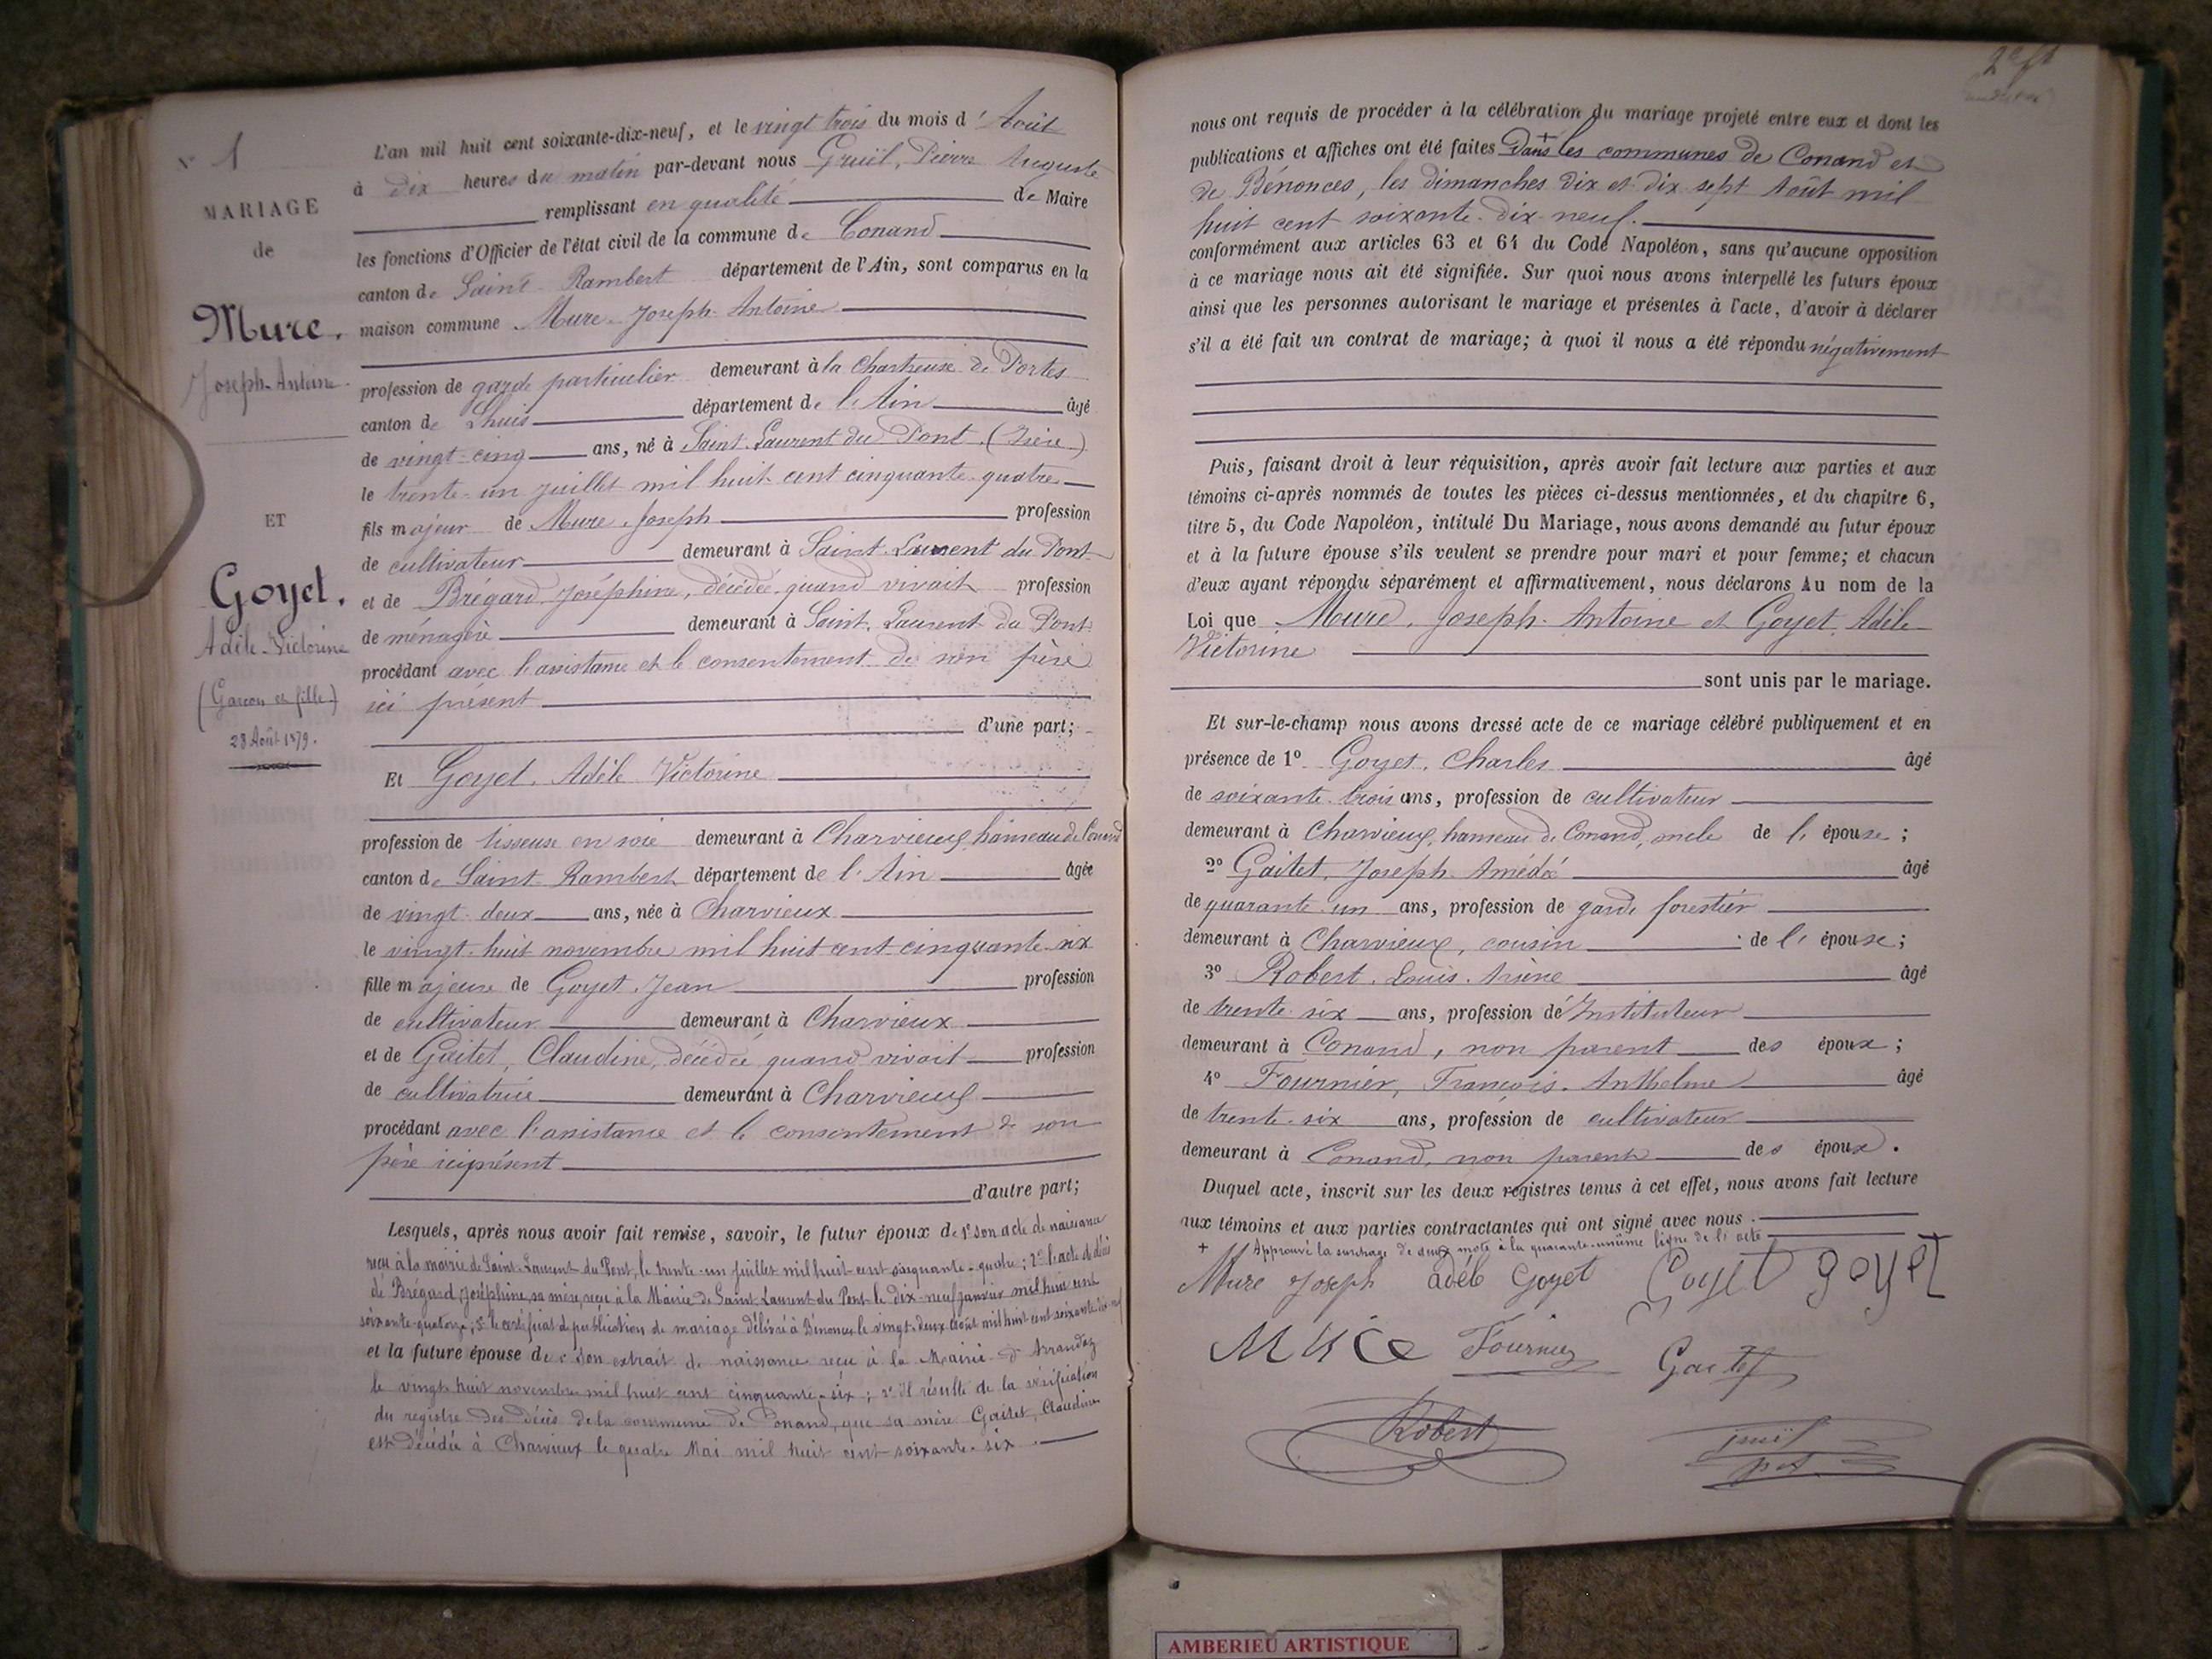 N° 1
MARIAGE
de
Mure,
Joseph-Antoine.
ET
Goyet.
Adèle-Victorine
(Garçon et fille)
23 Août 1879.
L'an mil huit cent soixante-dix-neuf, et le vingt trois du mois d'Août
à dix heures du matin par-devant nous Gruël, Pierre Auguste
remplissant en qualité de Maire
les fonctions d'Officier de l'état civil de la commune de Conand
canton de Saint-Rambert département de l'Ain, sont comparus en la
maison commune Mure Joseph-Antoine
profession de garde particulier demeurant à la Chartreuse de Portes
canton de Lhuis département de l'Ain âgé
de vingt-cinq ans, né à Saint-Laurent du Pont (Isère)
le trente-un juillet mil huit cent cinquante-quatre
fils majeur de Mure, Joseph profession
de cultivateur demeurant à Saint-Laurent du Pont
et de Brégard Joséphine, décédée quand vivait profession
de ménagère demeurant à Saint-Laurent du Pont
procédant avec l'assistance et le consentement de son père
ici présent
d'une part;
Et Goyet, Adèle Victorine
profession de tisseuse en soie demeurant à Charvieux, hameau de Conand
canton de Saint-Rambert département de l'Ain âgée
de vingt-deux ans, née à Charvieux
le vingt-huit novembre mil huit cent cinquante-six
fille majeure de Goyet, Jean profession
de cultivateur demeurant à Charvieux
et de Gaitet, Claudine, décédée quand vivait profession
de cultivatrice demeurant à Charvieux
procédant avec l'assistance et le consentement de son
père ici présent
d'autre part;
Lesquels, après nous avoir fait remise, savoir, le futur époux de 1° son acte de naissance
reçu à la mairie de Saint-Laurent du Pont, le trente-un juillet mil huit cent cinquante-quatre; 2° l'acte de décès
de Brégard, Joséphine, sa mère, reçu à la Mairie de Saint-Laurent du Pont le dix-neuf janvier mil huit cent
soixante-quatorze; 3° le certificat de publication de mariage délivré à Bénonces le vingt-deux août mil huit cent soixante-dix-neuf
et la future épouse de 1° son extrait de naissance reçu à la Mairie d'Arrandaz
le vingt-huit novembre mil huit cent cinquante-six; 2° Il résulte de la vérification
du registre des décès de la commune de Conand, que sa mère Gaitet, Claudine
est décédée à Charvieux le quatre Mai mil huit cent soixante-six.
nous ont requis de procéder à la célébration du mariage projeté entre eux et dont les
publications et affiches ont été faites + Dans les communes de Conand et
de Bénonces, les dimanches dix et dix sept Août mil
huit cent soixante-dix-neuf.
conformément aux articles 63 et 64 du Code Napoléon, sans qu'aucune opposition
à ce mariage nous ait été signifiée. Sur quoi nous avons interpellé les futurs époux
ainsi que les personnes autorisant le mariage et présentes à l'acte, d'avoir à déclarer
s'il a été fait un contrat de mariage; à quoi il nous a été répondu négativement
Puis, faisant droit à leur réquisition, après avoir fait lecture aux parties et aux
témoins ci-après nommés de toutes les pièces ci-dessus mentionnées, et du chapitre 6,
titre 5, du Code Napoléon, intitulé Du Mariage, nous avons demandé au futur époux
et à la future épouse s'ils veulent se prendre pour mari et pour femme; et chacun
d'eux ayant répondu séparément et affirmativement, nous déclarons Au nom de la
Loi que Mure, Joseph-Antoine et Goyet, Adèle
Victorine
sont unis par le mariage.
Et sur-le-champ nous avons dressé acte de ce mariage célébré publiquement et en
présence de 1° Goyet, Charles âgé
de soixante-trois ans, profession de cultivateur
demeurant à Charvieux, hameau de Conand, oncle de l'épouse;
2° Gaitet, Joseph Amédée âgé
de quarante-un ans, profession de garde forestier
demeurant à Charvieux, cousin de l'épouse;
3° Robert, Louis Arsène âgé
de trente-six ans, profession d'Instituteur
demeurant à Conand, non parent des époux;
4° Fournier, François-Anthelme âgé
de trente-six ans, profession de cultivateur
demeurant à Conand, non parent des époux.
Duquel acte, inscrit sur les deux registres tenus à cet effet, nous avons fait lecture
aux témoins et aux parties contractantes qui ont signé avec nous.
+ Approuvé la surcharge de deux mots à la quarante-unième ligne de l'acte
Mure Joseph adéle Goyet Goyet goyet
Mure Fournier Gaitet
Robert Gruël
AMBERIEU ARTISTIQUE